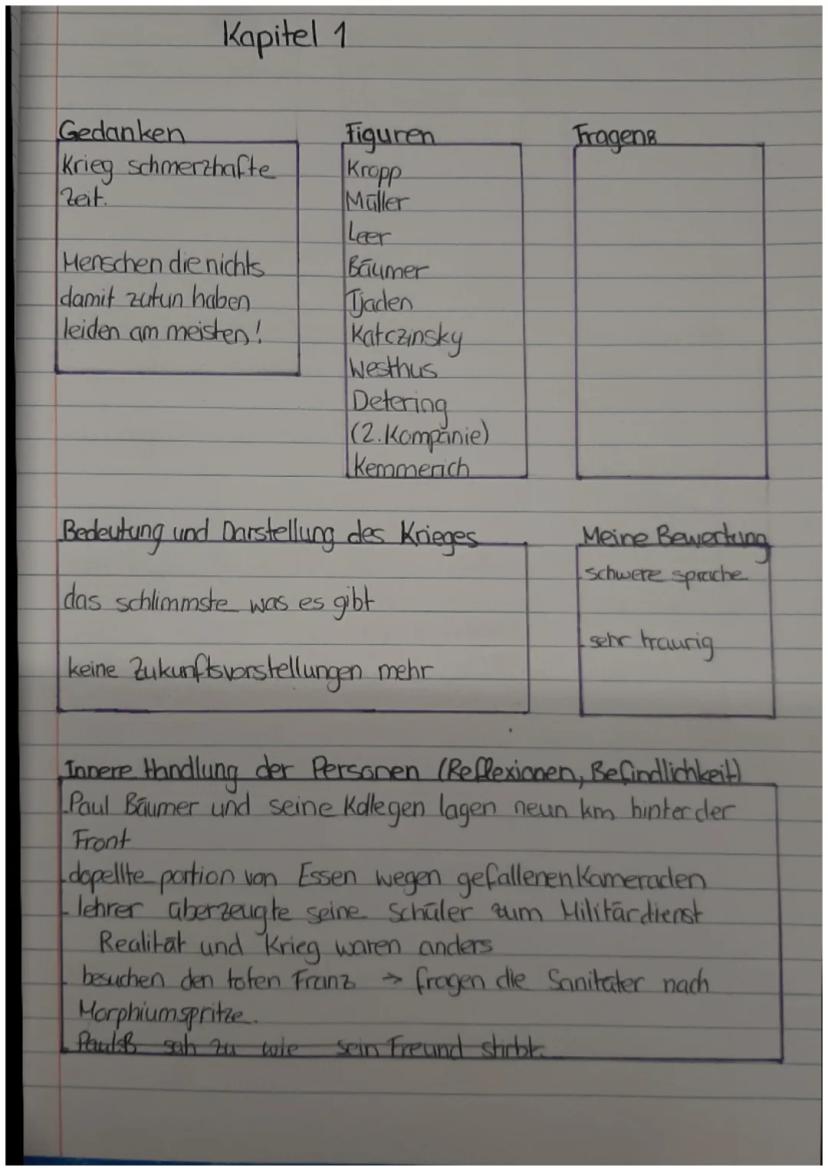 Kapitel 1
Gedanken
Krieg schmerzhafte
Zeit.
Menschen die nichts
damit zutun haben
leiden am meisten!
Figuren
Kropp
Müller
Leer
Bäumer
Tjaden
Katczinsky
Westhus
Detering
(2. Kompanie)
Kemmerich
Fragen:
Bedeutung und Darstellung des Krieges
das schlimmste was es gibt
keine Zukunftsvorstellungen mehr
Meine Bewertung
schwere sprache
sehr traurig
Innere Handlung der Personen (Reflexionen, Befindlichkeit)
Paul Bäumer und seine Kollegen lagen neun km hinter der
Front
dopellte portion von Essen wegen gefallenen Kameraden
lehrer überzeugte seine Schüler zum Militärdienst
Realität und Krieg waren anders
besuchen den toten Franz → fragen die Sanitäter nach
Morphiumspritze.
sah zu wie sein Freund stirbt.